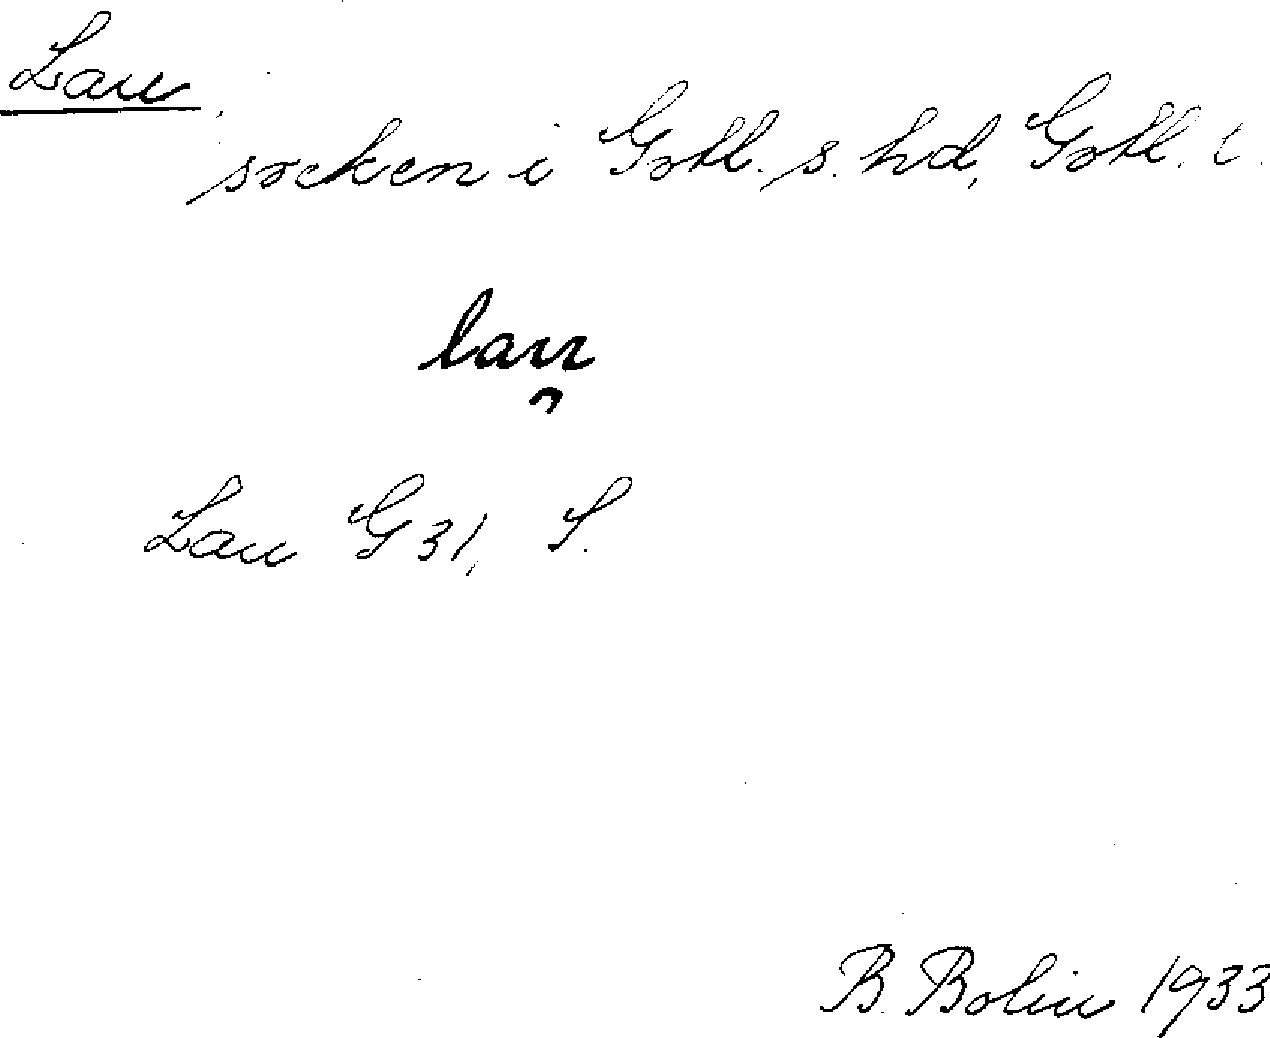 Lau,
socken i Gotl. s. hd, Gotl. l.
lau
Lau G 31, S.
B. Bolin 1933